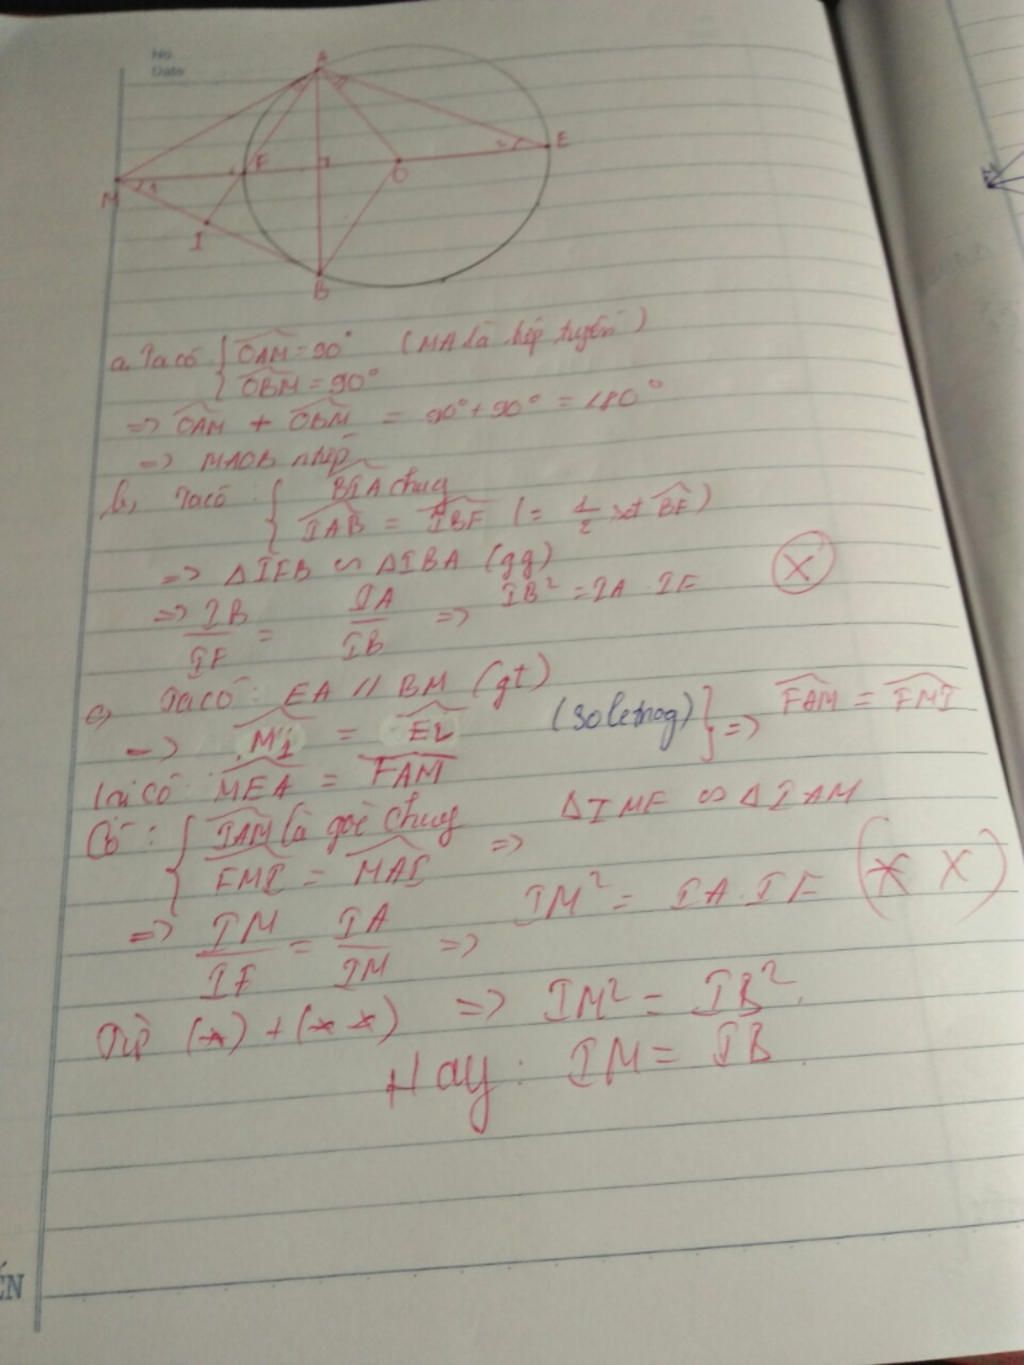 No.
Date
A
M
1
F
O
2
E
I
B
a. Ta có { OAM = 90° (MA là tiếp tuyến)
OBM = 90°
=> OAM + OBM = 90° + 90° = 180°
=> MAOB ntiếp
b, Ta có : { BIA chung
IAB = IBF (= 1/2 sđ BF)
=> ΔIFB ∽ ΔIBA (gg)
=> IB/IF = IA/IB => IB² = IA . IF (X)
c, Ta có : EA // BM (gt)
=> M1 = E2 (soletrog) } => FAM = FMI
lại có MEA = FAM
Có : { IAM là góc chung => ΔIMF ∽ ΔIAM
FMI = MAI
=> IM/IF = IA/IM => IM² = IA . IF (X X)
Từ (*) + (**) => IM² = IB².
Hay : IM = IB.
ẾN